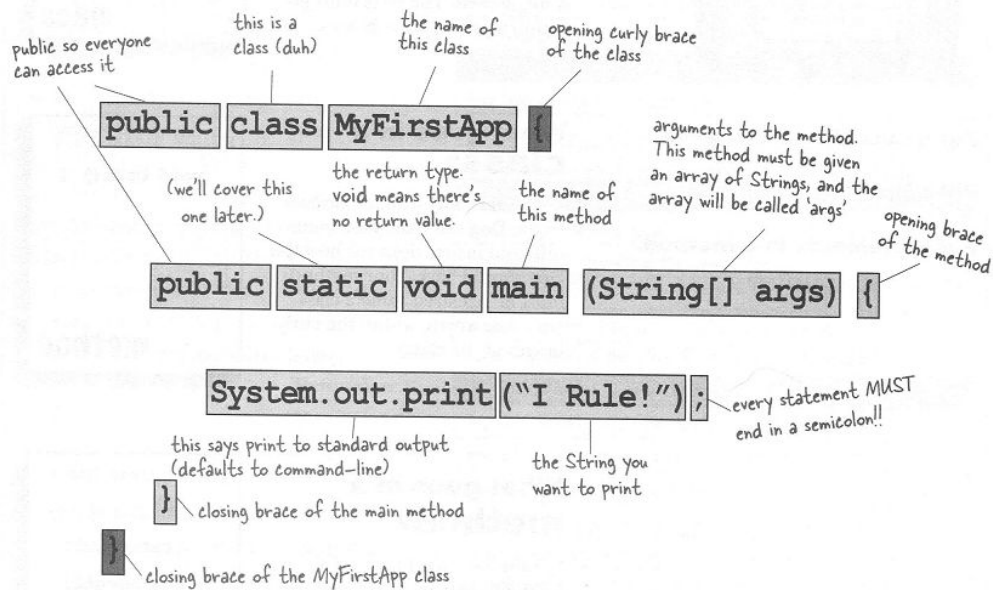 this is a
class (duh)
the name of
this class
opening curly brace
of the class
public so everyone
can access it
public class MyFirstApp {
(we'll cover this
one later.)
the return type.
void means there's
no return value.
the name of
this method
arguments to the method.
This method must be given
an array of Strings, and the
array will be called 'args'
opening brace
of the method
public static void main (String[] args) {
System.out.print("I Rule!");
every statement MUST
end in a semicolon!!
this says print to standard output
(defaults to command-line)
the String you
want to print
}
closing brace of the main method
}
closing brace of the MyFirstApp class